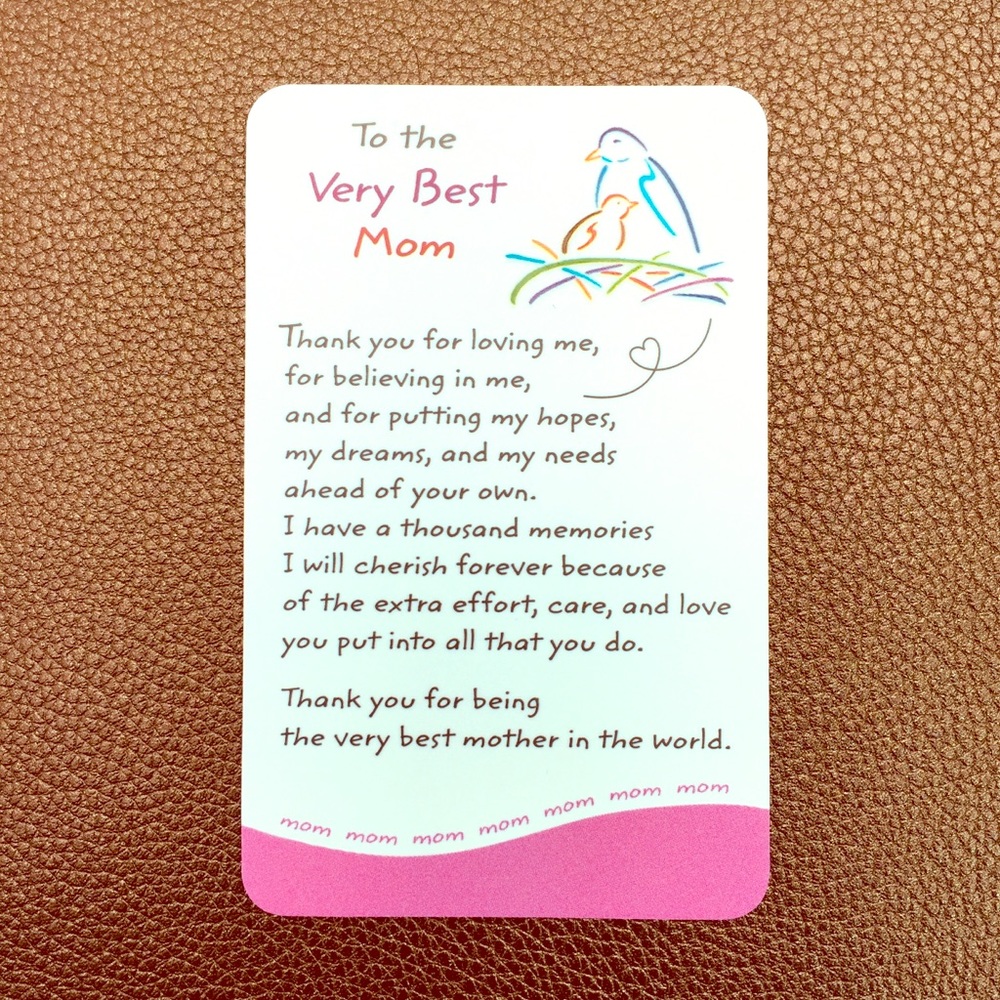 To the
Very Best
Mom
Thank you for loving me,
for believing in me,
and for putting my hopes,
my dreams, and my needs
ahead of your own.
I have a thousand memories
I will cherish forever because
of the extra effort, care, and love
you put into all that you do.
Thank you for being
the very best mother in the world.
mom mom mom mom mom mom mom